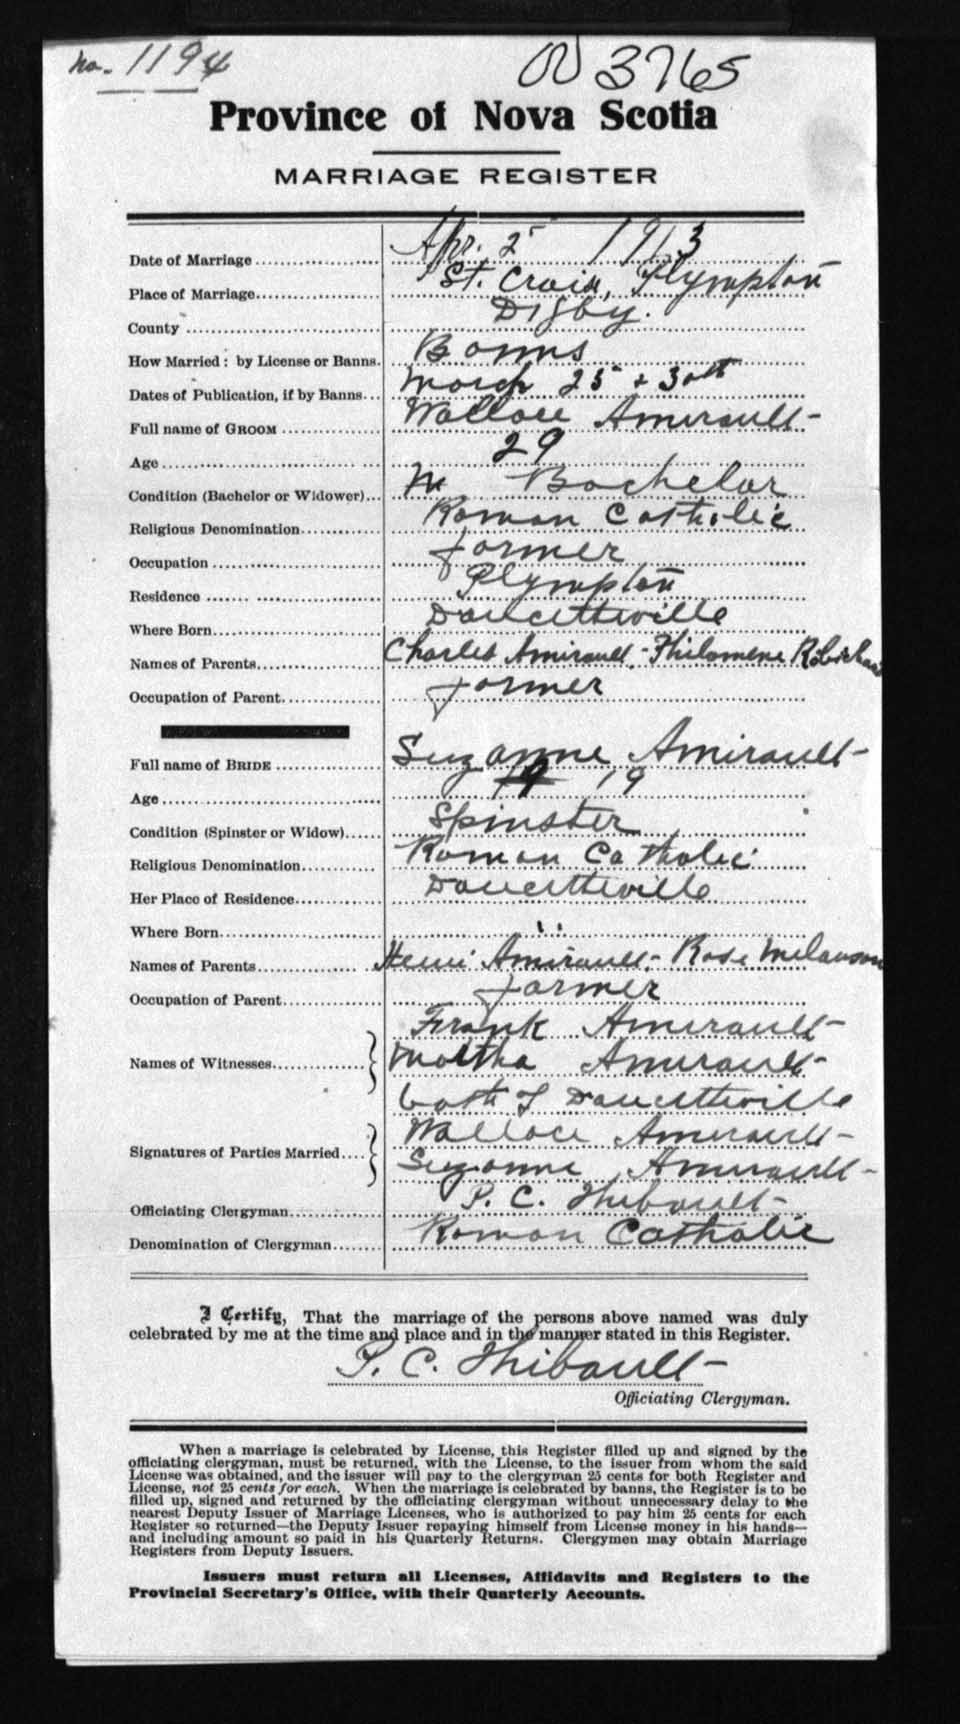 No. 1194
3765
Province of Nova Scotia
MARRIAGE REGISTER
Date of Marriage Apr. 25 1913
Place of Marriage St. Croix, Plympton
County Digby.
How Married: by License or Banns. Banns
Dates of Publication, if by Banns March 25 & 30th
Full name of GROOM Wallace Amirault
Age 29
Condition (Bachelor or Widower) Bachelor
Religious Denomination Roman Catholic
Occupation farmer
Residence Plympton
Where Born Doucetteville
Names of Parents Charles Amirault - Philomene Robichau
Occupation of Parent farmer
Full name of BRIDE Suzanne Amirault
Age 19
Condition (Spinster or Widow) Spinster
Religious Denomination Roman Catholic
Her Place of Residence Doucetteville
Where Born "
Names of Parents Henri Amirault - Rose Melanson
Occupation of Parent farmer
Frank Amirault
Names of Witnesses Martha Amirault
both of Doucetteville
Wallace Amirault
Signatures of Parties Married Suzanne Amirault
Officiating Clergyman P. C. Thibault
Denomination of Clergyman Roman Catholic
I Certify, That the marriage of the persons above named was duly
celebrated by me at the time and place and in the manner stated in this Register.
P. C. Thibault
Officiating Clergyman.
When a marriage is celebrated by License, this Register filled up and signed by the
officiating clergyman, must be returned, with the License, to the issuer from whom the said
License was obtained, and the issuer will pay to the clergyman 25 cents for both Register and
License, not 25 cents for each. When the marriage is celebrated by banns, the Register is to be
filled up, signed and returned by the officiating clergyman without unnecessary delay to the
nearest Deputy Issuer of Marriage Licenses, who is authorized to pay him 25 cents for each
Register so returned—the Deputy Issuer repaying himself from License money in his hands—
and including amount so paid in his Quarterly Returns. Clergymen may obtain Marriage
Registers from Deputy Issuers.
Issuers must return all Licenses, Affidavits and Registers to the
Provincial Secretary's Office, with their Quarterly Accounts.